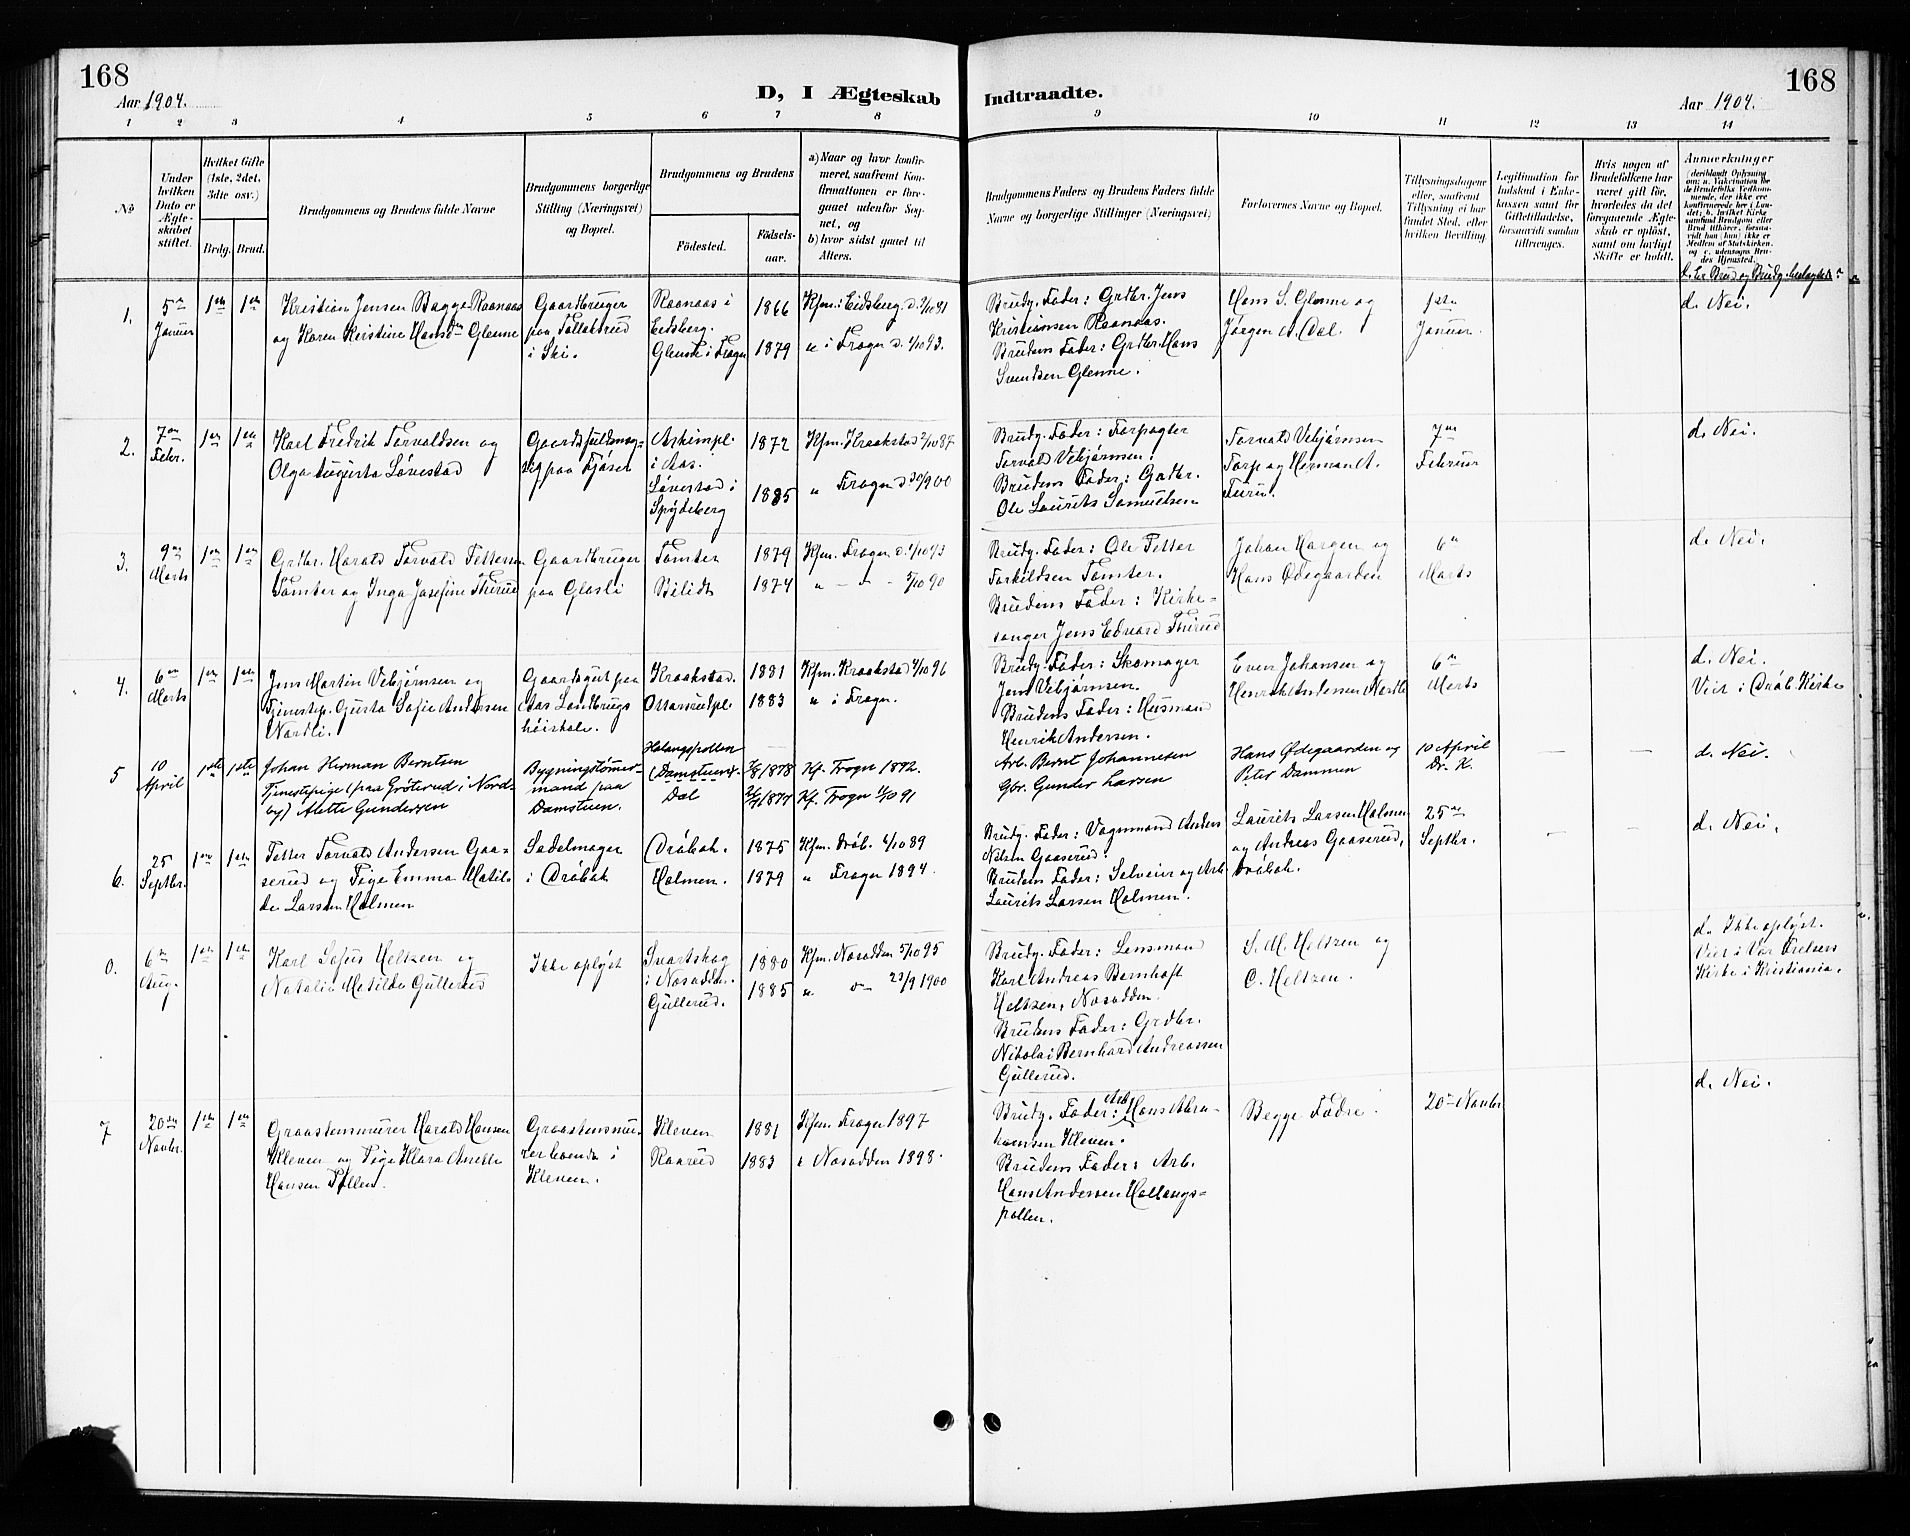 168
Aar 1904.
D, I Ægteskab
Indtraadte.
Aar 1904.
168
1 2 3 4 5 6 7 8 9 10 11 12 13 14
No
Under hvilken Dato er Ægteskabet stiftet.
Hvilket Gifte (1ste, 2det, 3dte osv.)
Brdg. Brud.
Brudgommens og Brudens fulde Navne
Brudgommens borgerlige Stilling (Næringsvei) og Bopæl.
Brudgommens og Brudens
Födested.
Födselsaar.
a) Naar og hvor konfirmeret, saafremt Konfirmationen er foregaaet udenfor Sognet, og
b) hvor sidst gaaet til Alters.
Brudgommens Faders og Brudens Faders fulde Navne og borgerlige Stillinger (Næringsvei)
Forlovernes Navne og Bopæl.
Tillysningsdagene eller, saafremt Tillysning ei har fundet Sted, efter hvilken Bevilling.
Legitimation for Indskud i Enkekassen samt for Giftetilladelse, forsaavidt saadan tiltrænges.
Hvis nogen af Brudefolkene har været gift før, hvorledes da det foregaaende Ægteskab er oplöst, samt om lovligt Skifte er holdt.
Anmerkninger
(deriblandt Oplysning om: a. Vakcination for de Brudefolks Vedkommende, der ikke ere konfirmerede her i Landet; b. hvilket Kirkesamfund Brudgom eller Brud tilhører, forsaavidt han (hun) ikke er Medlem af Statskirken, og c. udensogns Brudes Hjemsted.
d. Er Brud og Brudg. beslægtede?
1.
5te Januar
1ste 1ste
Kristian Jensen Bagge Raanaas
og Karen Kristine Hansdtr Glenne
Gaardbruger
paa Tallaksrud
i Ski.
Raanaas i
Eidsberg.
Glenne i Frogn
1866
1879
Kfm. i Eidsberg d. 2/10 81
" i Frogn d. 1/10 93.
Brudg. Fader: Grdbr. Jens
Kristiansen Raanaas.
Brudens Fader: Grdbr. Hans
Svendsen Glenne.
Hans S. Glenne og
Jörgen A. Dal.
1ste
Januar.
d. Nei.
2.
7de
Febr.
Karl Fredrik Torvaldsen og
Olga Augusta Lövestad
Gaardsfuldmægtig paa Fjöser
Askimpl.
i Aas.
Lövestad i
Spydeberg
1872
1885
Kfm. Kraakstad 2/10 87
" Frogn d. 30/9 00
Brudg. Fader: Forpagter
Torvald Vebjörnsen.
Brudens Fader: Grdbr.
Ole Laurits Samuelsen
Torvald Vebjörnsen
Torp og Herman A.
Furu.
7de
Februar
d. Nei.
3.
9de
Marts
Grdbr. Harald Torvald Pettersen
Tomter og Inga Josefine Thirud
Gaardbruger
paa Glosli
Tomter
Bilidt
1879
1874
Kfm. Frogn d. 1/10 93
" — " — 5/10 90
Brudg. Fader: Ole Petter
Torkildsen Tomter.
Brudens Fader: Kirkesanger Jens Edvard Thirud
Johan Hargen og
Hans Ödegaarden
6te
Marts
d. Nei.
4.
6te
Marts
Jens Martin Vebjörnsen og
Tjenestep. Gusta Sofie Andersen
Nordli.
Gaardsgut paa
Aas Landbrugs
höiskole.
Kraakstad.
Ottarsrudpl.
1881
1883
Kfm. Kraakstad 4/10 96
" i Frogn.
Brudg. Fader: Skomager
Jens Vebjörnsen.
Brudens Fader: Husmand
Henrik Andersen.
Even Johansen og
Henrik Andersen Nordli
6te
Marts
d. Nei.
Viet i Dröb. Kirke
5
10
April
1ste 1ste
Johan Herman Berntsen
Tjenestepige (paa Gröterud i Nordby) Alette Gundersen
Bygningstömmermand paa
Damstuen.
Halangspollen
(Damstuen).
Dal
7/8 1878
1874
Kf. Frogn 1892.
Kf. Frogn 11/10 91
Arb. Bernt Johannesen
Gbr. Gunder Larsen
Hans Ödegaarden og
Peter Dammen
10 April
Dr. K.
—
—
d. Nei.
6.
25
Septbr.
1ste 1ste
Petter Torvald Andersen Gaaserud og Pige Emma Matilde Larsen Holmen
Sadelmager
i Dröbak
Dröbak.
Holmen.
1875
1879
Kfm. Dröb. 6/10 89
" Frogn 1894.
Brudg. Fader: Vognmand Anders
Nilsen Gaaserud.
Brudens Fader: Selveier og Arb.
Laurits Larsen Holmen.
Laurits Larsen Holmen
og Andreas Gaaserud,
Dröbak.
25de
Septbr.
—
—
d. Nei.
0.
6te
Aug.
1ste 1ste
Karl Sofus Heltzen og
Natalie Matilde Gullerud
Ikke oplyst
Svartskog
i Nesodden.
Gullerud.
1880
1885
Kfm. Nesodden 5/10 95
" o— 23/9 1900
Brudg. Fader: Lensmand
Karl Andreas Bernhoft
Heltzen, Nesodden.
Brudens Fader: Grdbr.
Nikolai Bernhard Andreassen
Gullerud.
S. M. Heltzen og
C. Heltzen.
d. Ikke oplyst.
Viet i Vor Frelsers
Kirke i Kristiania.
7
20de
Novbr.
1ste 1ste
Graastensmurer Harald Hansen
Kleven og Pige Klara Anette
Hansen Pollen.
Graastensmurer boende i
Kleven.
Kleven
Raarud
1881
1883
Kfm. Frogn 1897
" Nesodden 1898.
Brudg. Fader: Arb. Hans Abrahamsen Kleven.
Brudens Fader: Arb.
Hans Andersen Hallangspollen.
Begge Fædre.
20de Novbr
d. Nei.